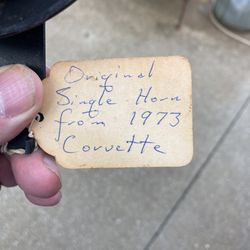 Original
Single Horn
from 1973
Corvette